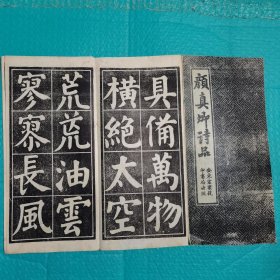 顏真卿詩品
具備萬物
橫絕太空
荒荒油雲
寥寥長風